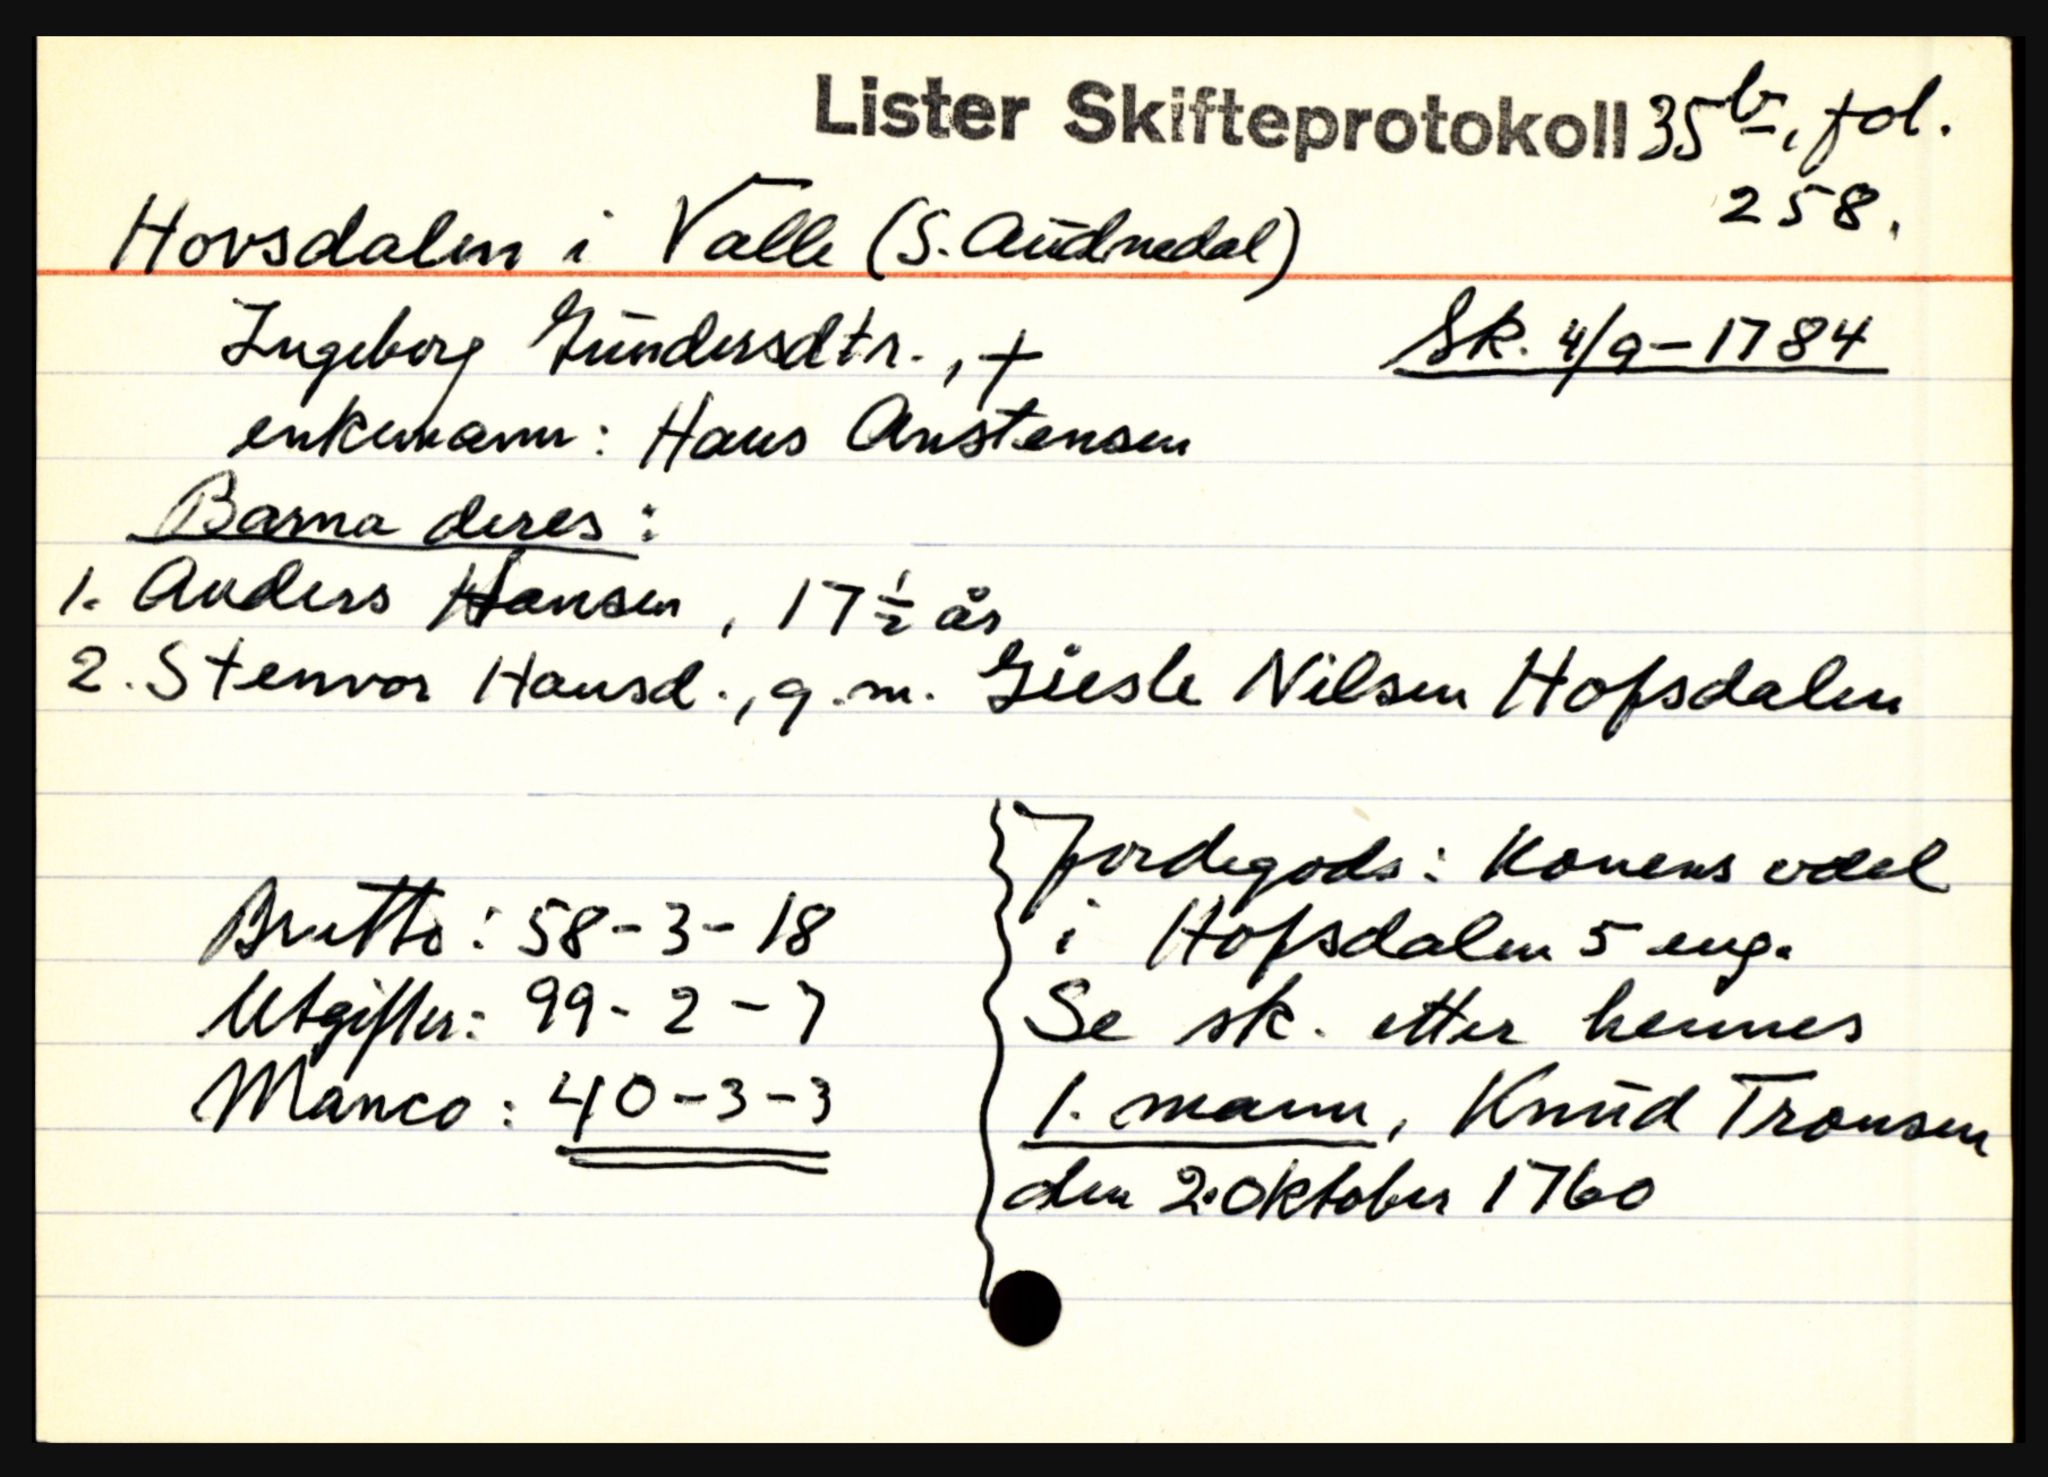 Lister Skifteprotokoll 35b, fol.
258.
Hovsdalen i Valle (S. Audnedal)
Ingeborg Gundersdtr., +
Sk. 4/9-1784
enkemann: Hans Anstensen
Barna deres:
1. Anders Hansen, 17 1/2 år
2. Stenvor Hansd., g.m. Giesle Nilsen Hofsdalen
Brutto: 58-3-18
Utgifter: 99-2-7
Manco: 40-3-3
Jordegods: Konens odel
i Hofsdalen 5 eng.
Se sk. etter hennes
1. mann, Knud Tronsen
den 2. Oktober 1760